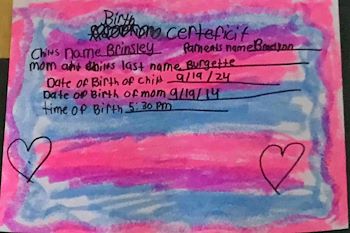 Birth
certeficit
Chihs Name Brinsley Parents name
mom last name Burgette
Date of Birth of chilt 9/19/24
Date of Birth of mom 9/19/14
time of Birth 5:30 pm